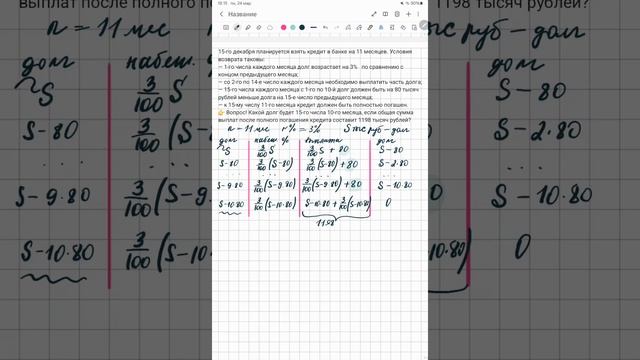 выплат после полного по
1198 тысяч рублей?
18:15 пн, 24 мар
50%
Название
15-го декабря планируется взять кредит в банке на 11 месяцев. Условия
возврата таковы:
— 1-го числа каждого месяца долг возрастает на 3% по сравнению с
концом предыдущего месяца;
— со 2-го по 14-е число каждого месяца необходимо выплатить часть долга;
— 15-го числа каждого месяца с 1-го по 10-й долг должен быть на 80 тысяч
рублей меньше долга на 15-е число предыдущего месяца;
— к 15-му числу 11-го месяца кредит должен быть полностью погашен.
👉 Вопрос! Какой долг будет 15-го числа 10-го месяца, если общая сумма
выплат после полного погашения кредита составит 1198 тысяч рублей?
n = 11 мес r% = 3% S тыс руб - долг
долг набеж. % выплата долг
S 3/100 S 3/100 S + 80 S - 80
S-80 3/100 (S-80) 3/100 (S-80) + 80 S - 2·80
... ... ... ...
S-9·80 3/100 (S-9·80) 3/100 (S-9·80) + 80 S - 10·80
S-10·80 3/100 (S-10·80) S-10·80 + 3/100 (S-10·80) 0
1198
n = 11 мес
долг набеж
S 3/100 S
S-80 3/100 (S-
... ...
S-9·80 3/100 (S-
S-10·80 3/100 (S-
долг
S - 80
S - 2·80
...
S - 10·80
0